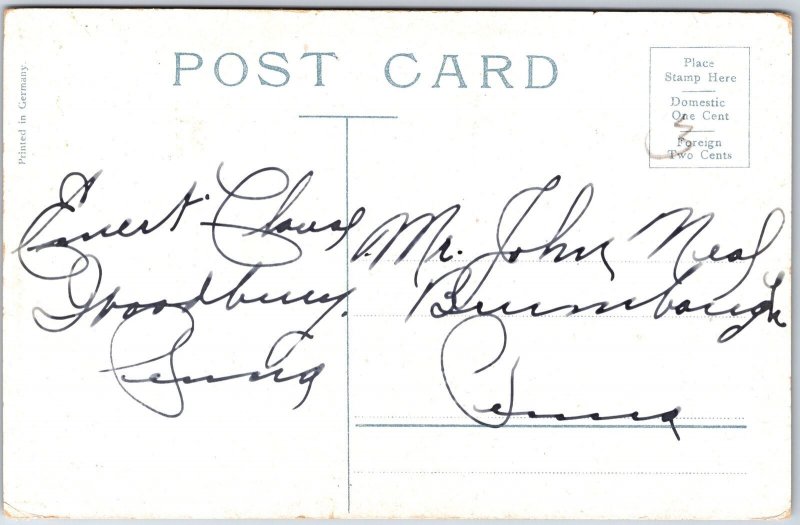 POST CARD
Printed in Germany.
Place
Stamp Here
Domestic
One Cent
Foreign
Two Cents
3
Emert Clouse
Woodbury
Penna
Mr. John Neal
Brumbaugh
Penna